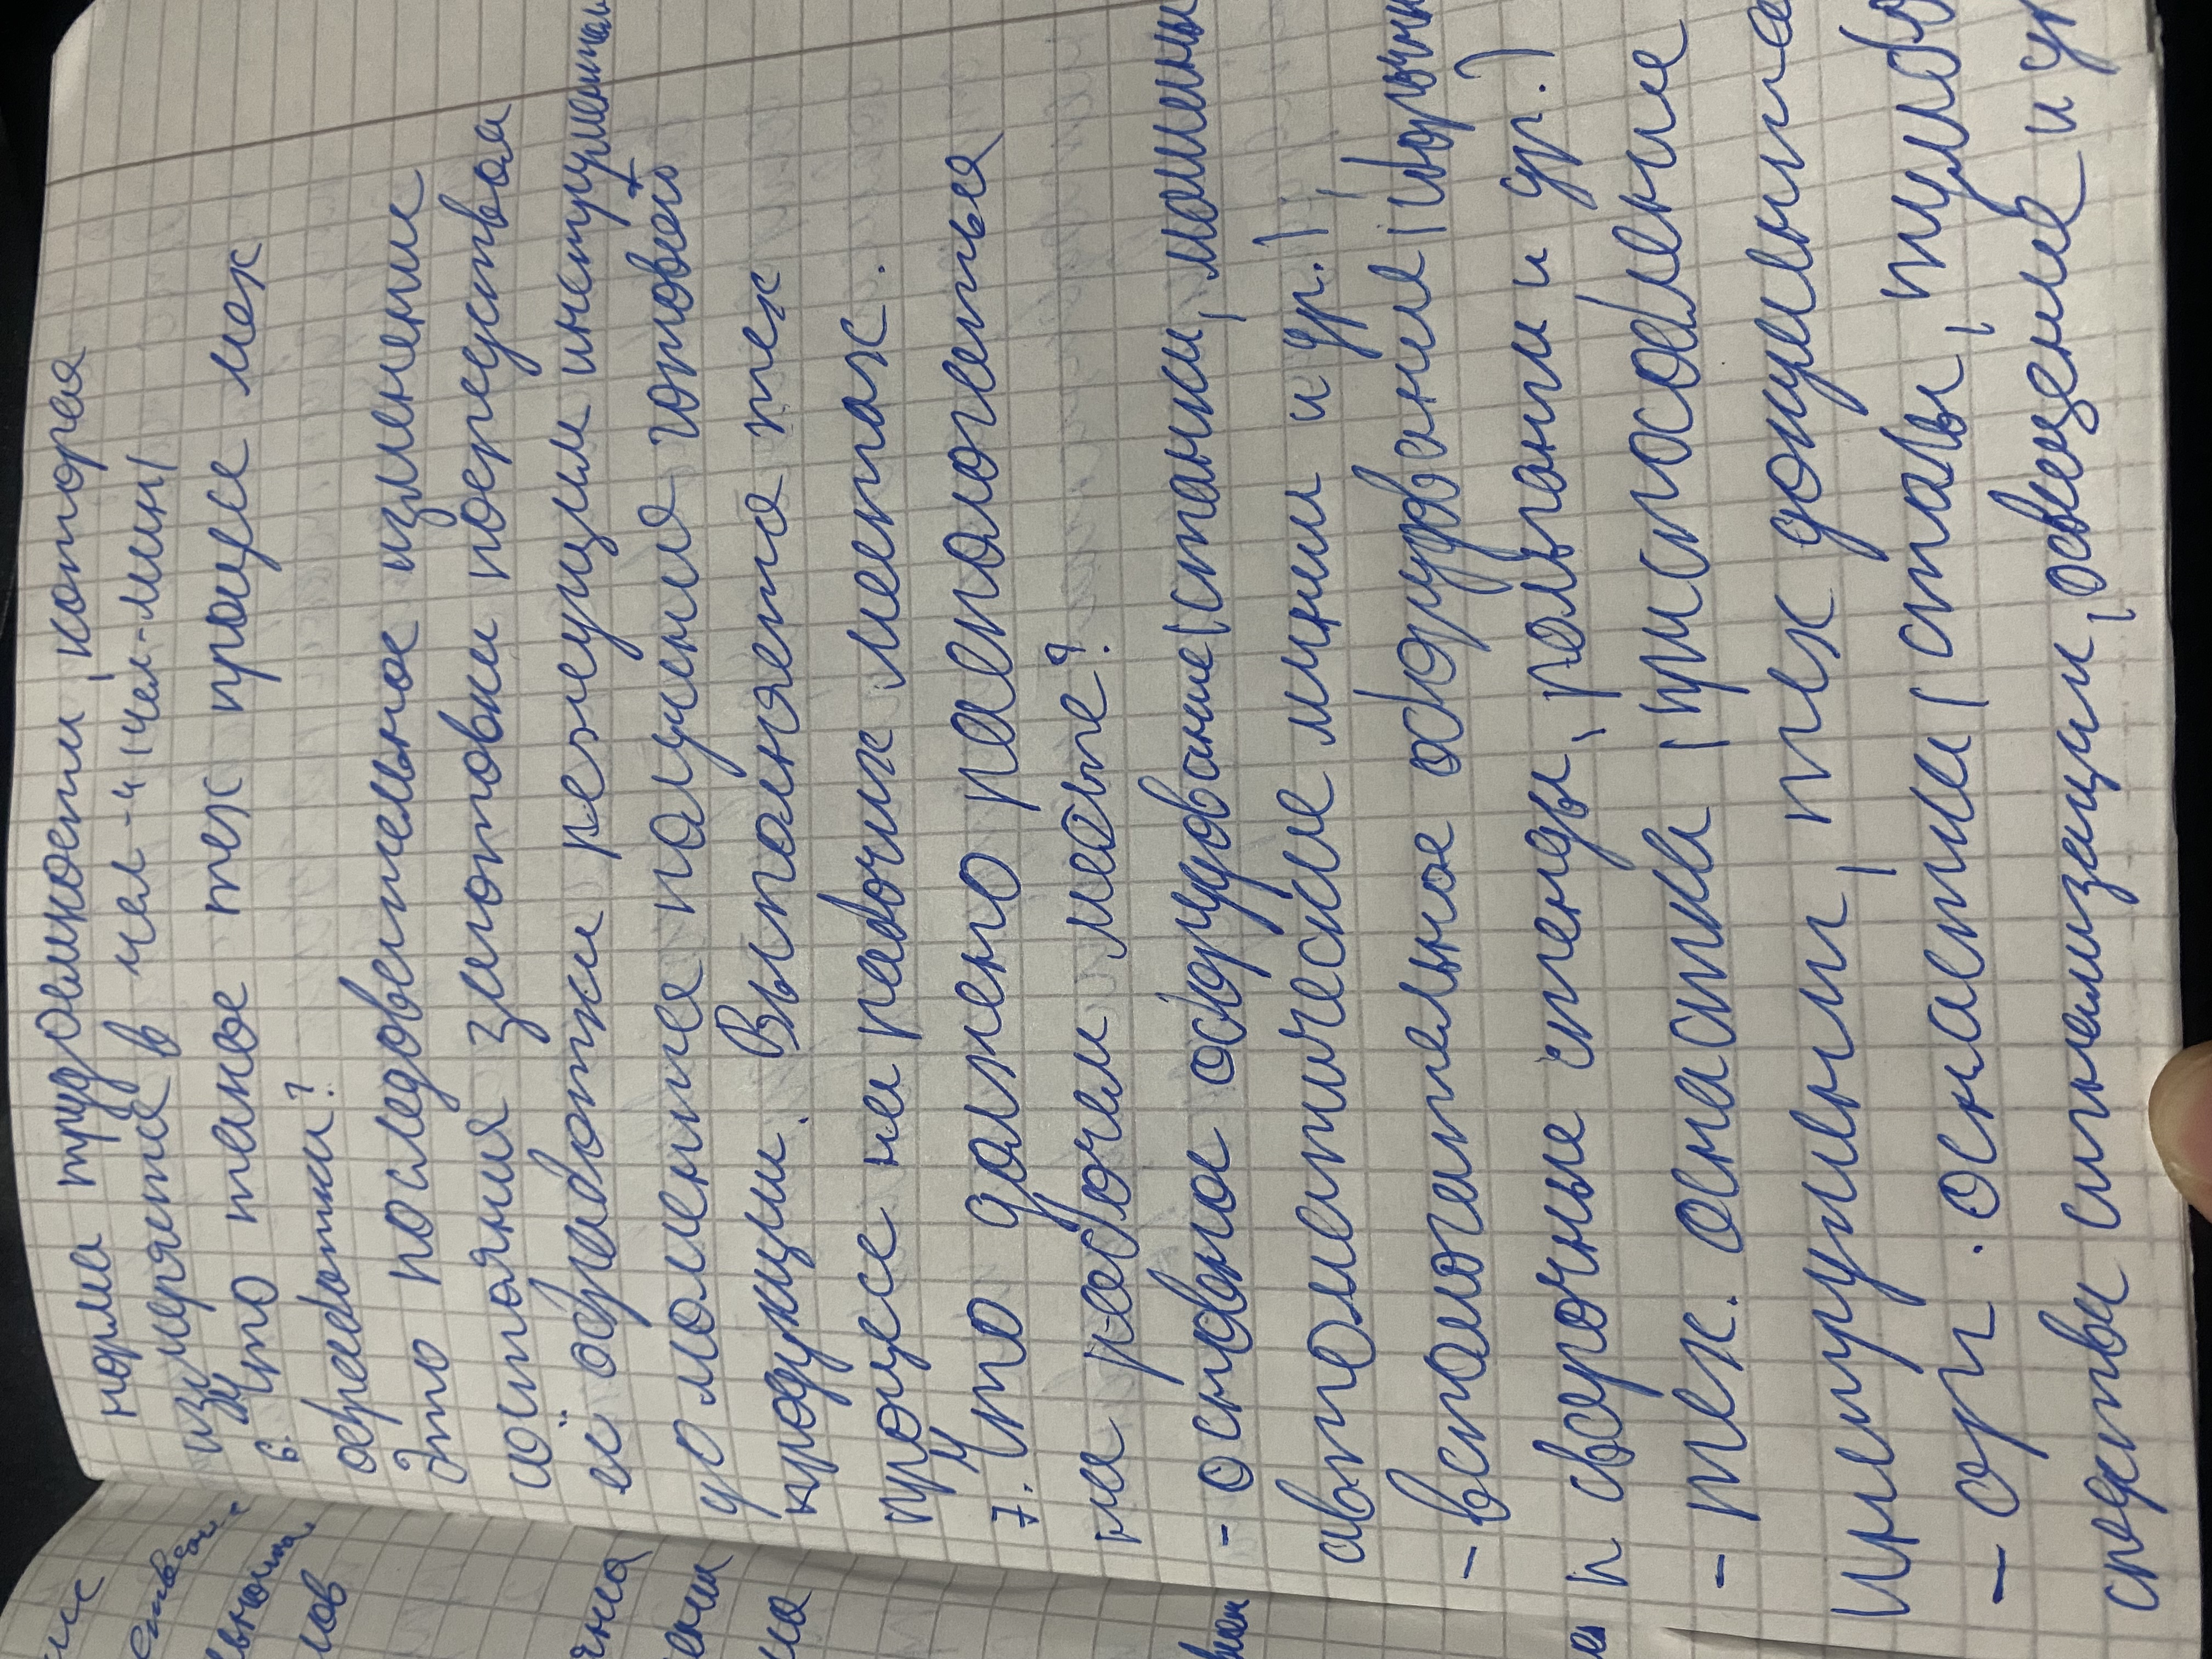 норма трудоёмкости, которая
измеряется в чел-ч (чел-мин)
6. Что такое тех процесс мех
обработки?
Это последовательное изменение
состояния заготовки посредством
её обработки режущим инструментом
до момента получения готовой
продукции. Выполняется тех
процесс на рабочих местах.
7. Что должно располагаться
на рабочем месте?
- основное оборудование (станки, машины
автоматические линии и др.),
- вспомогательное оборудование (сборочн
и сварочные стенды, рольганги и др.)
- тех. оснастка (приспособление
инструмент, тех документа
- орг. оснастка (столы, тумбо
средства сигнализации, освещение и др